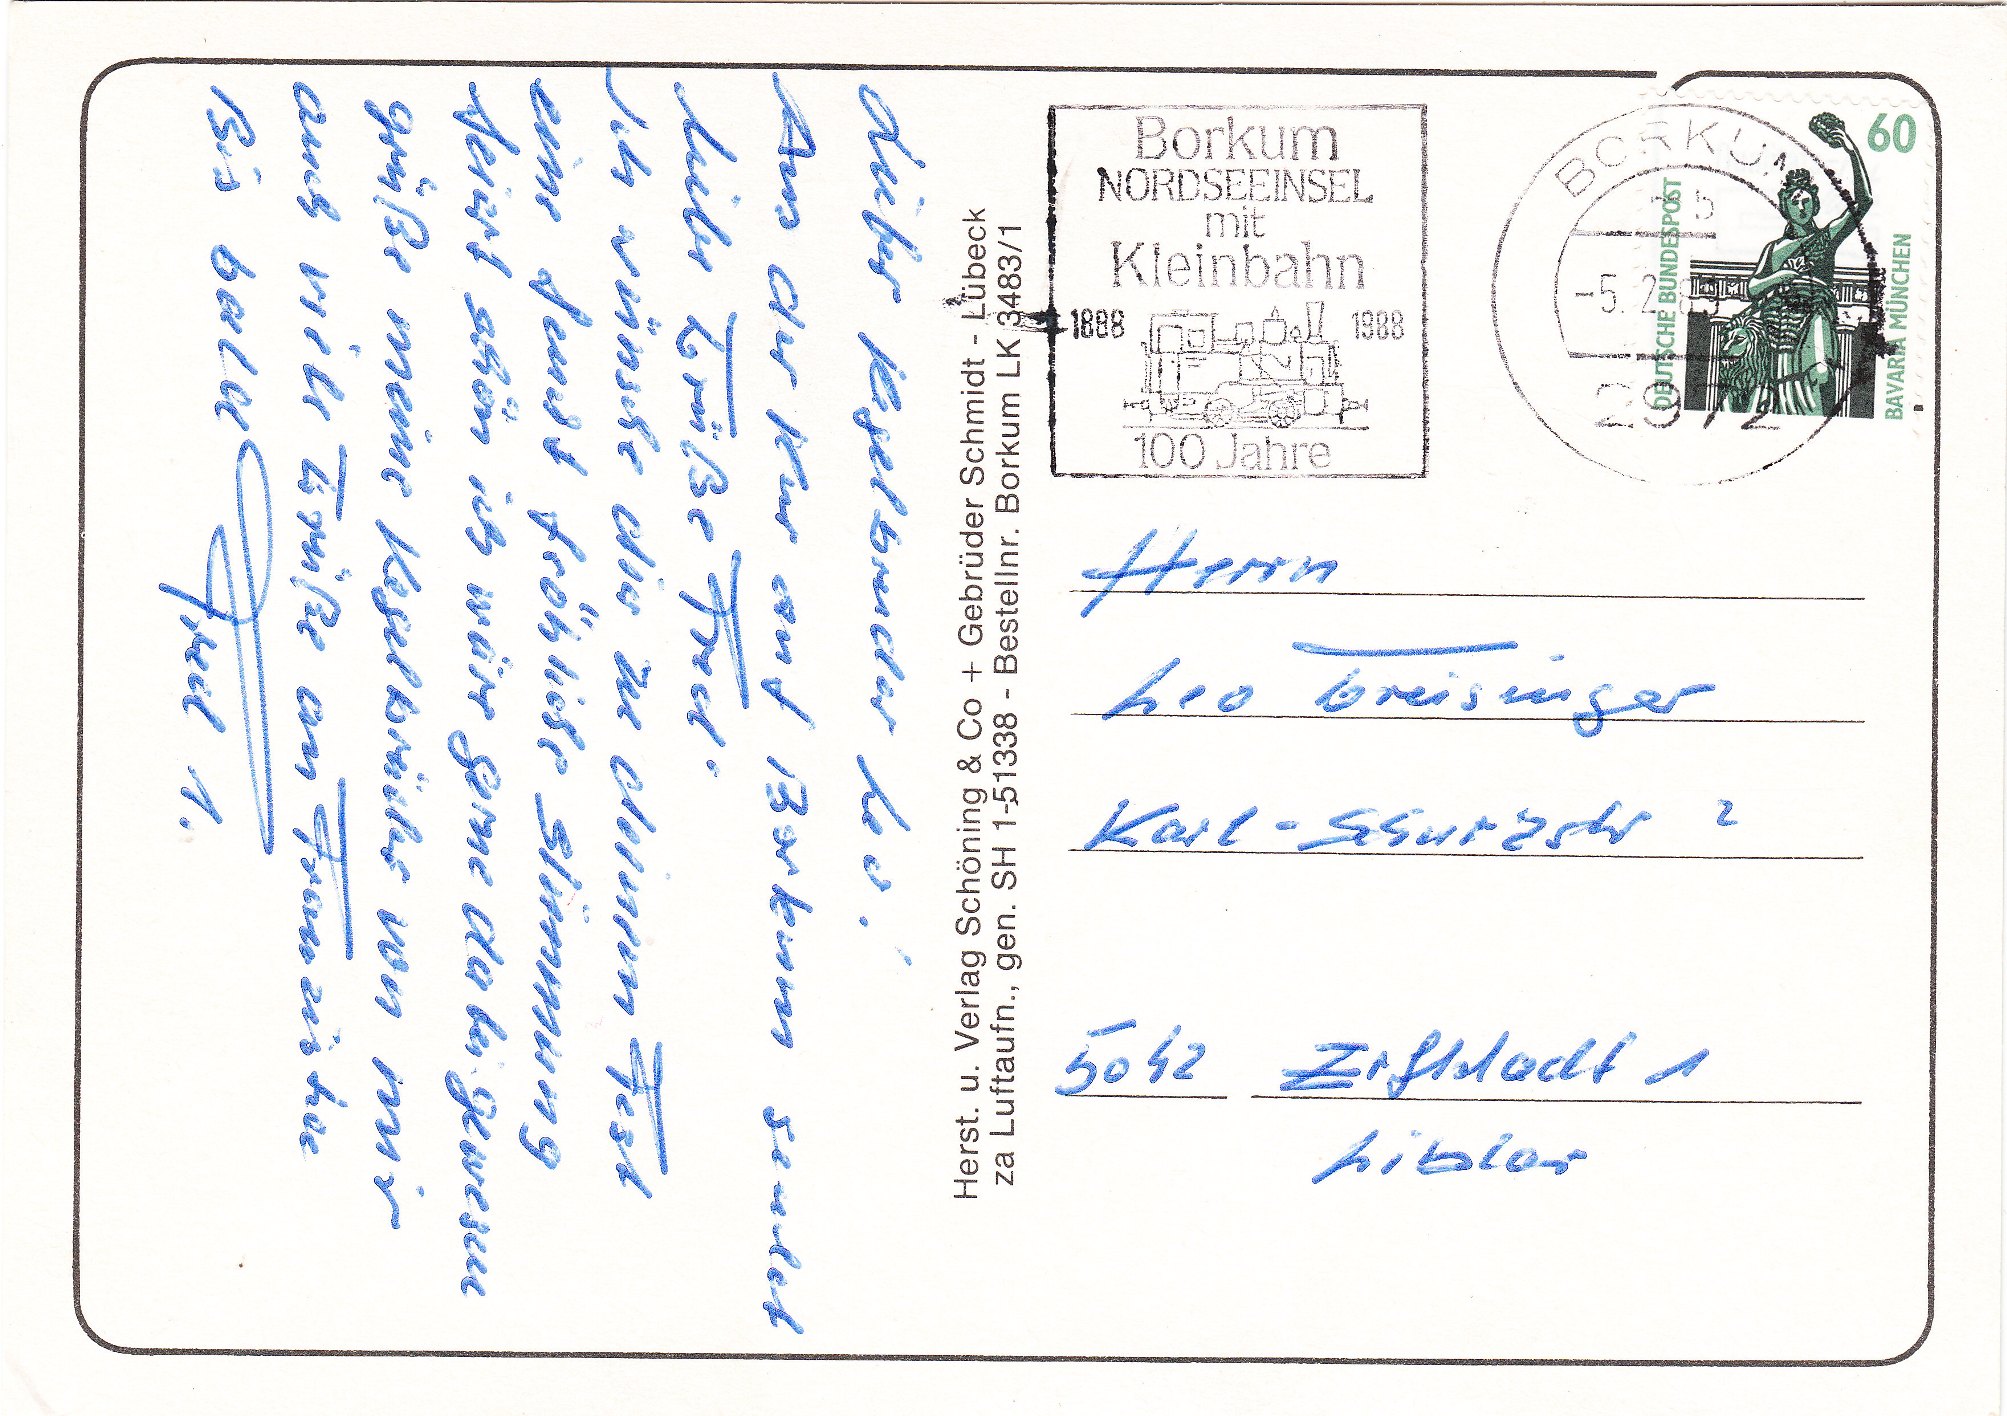 Lieber Kegelbruder Leo!
Aus der Kur auf Borkum sendet
Liebe Grüße Fred.
Ich wünsche dir zu deinem Fest
eine Fröhliche Stimmung
Feiert schön ich wär gerne dabeigewesen
grüße meine Kegelbrüder von mir
auch viele Grüße an Franziska
Bis bald
Fred 1.
Herst. u. Verlag Schöning & Co + Gebrüder Schmidt - Lübeck
za Luftaufn., gen. SH 1-51338 - Bestellnr. Borkum LK 3483/1
Borkum
NORDSEEINSEL
mit
Kleinbahn
1888 1988
100 Jahre
BORKUM
-5.2.89
2972
60
DEUTSCHE BUNDESPOST
BAVARIA MÜNCHEN
Herrn
Leo Greisinger
Karl-Schurzstr 2
5042 Erftstadt 1
Liblar